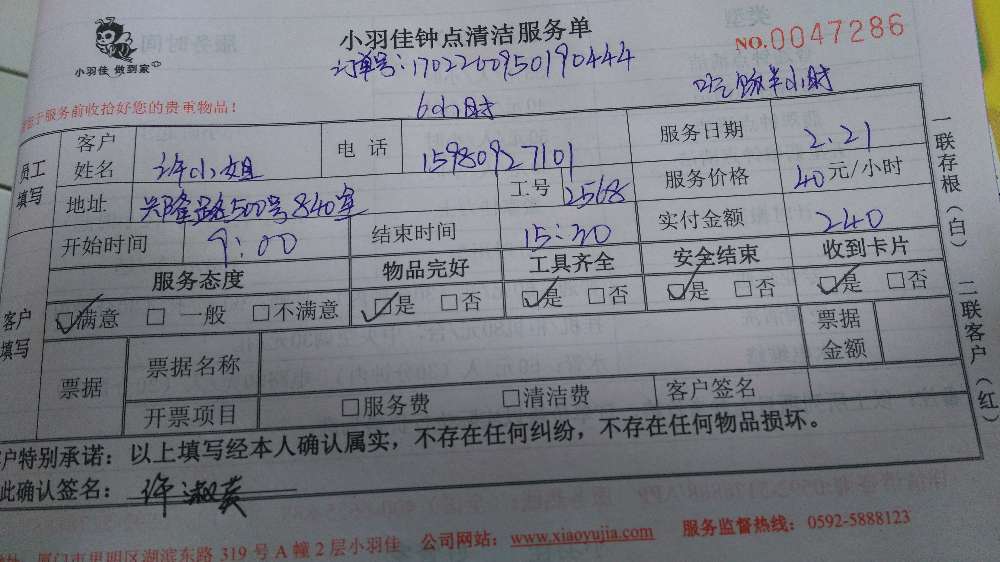 小羽佳 做到家
小羽佳钟点清洁服务单
NO.0047286
订单号:17022200950190444
于服务前收拾好您的贵重物品!
6小时
吃饭半小时
员工填写
客户姓名 许小姐 电话 15980927101 服务日期 2.21
地址 兴隆路500号840室 工号 2568 服务价格 40元/小时
开始时间 9:00 结束时间 15:30 实付金额 240
客户填写
服务态度 物品完好 工具齐全 安全结束 收到卡片
☑满意 □一般 □不满意 ☑是 □否 ☑是 □否 ☑是 □否 ☑是 □否
票据 票据名称 票据金额
开票项目 □服务费 □清洁费 客户签名
户特别承诺:以上填写经本人确认属实,不存在任何纠纷,不存在任何物品损坏。
此确认签名: 许淑英
一联存根(白) 二联客户(红)
厦门市思明区湖滨东路 319 号 A 幢 2 层小羽佳 公司网站:www.xiaoyujia.com 服务监督热线:0592-5888123